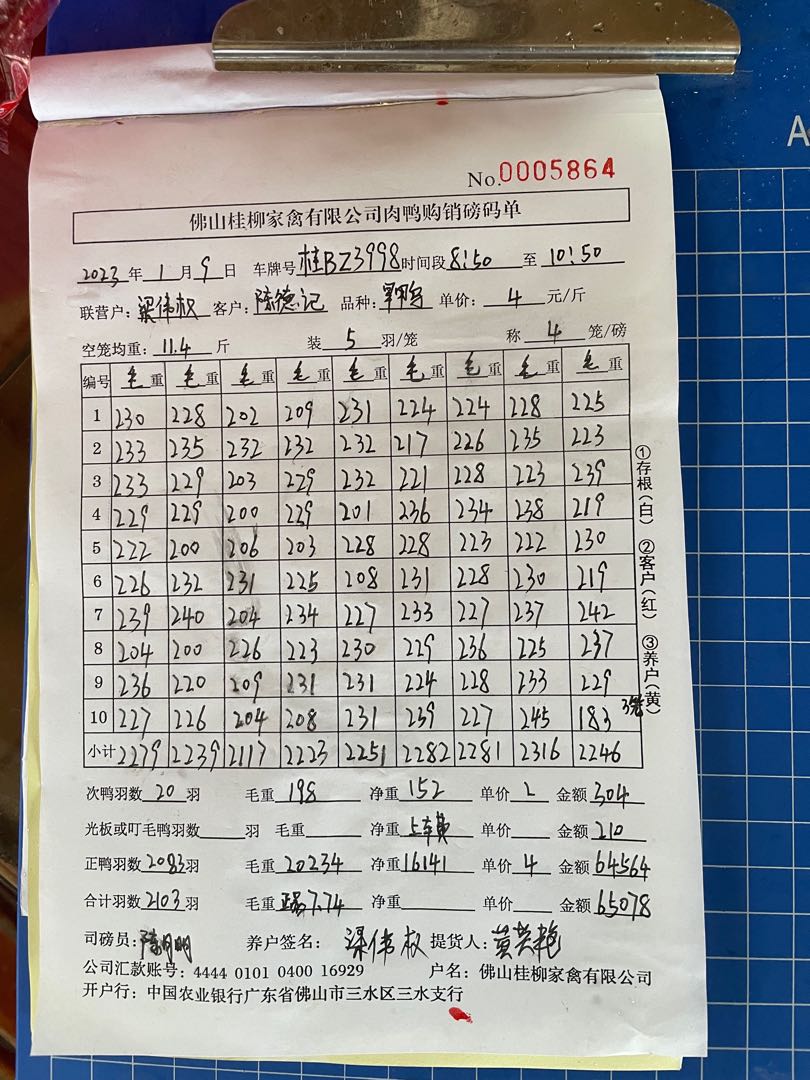 No.0005864
佛山桂柳家禽有限公司肉鸭购销磅码单
2023 年 1 月 9 日 车牌号 桂BZ3998 时间段 8:50 至 10:50
联营户: 梁伟权 客户: 陈德记 品种: 单价: 4 元/斤
空笼均重: 11.4 斤 装 5 羽/笼 称 4 笼/磅
编号 毛重 毛重 毛重 毛重 毛重 毛重 毛重 毛重 毛重
1 230 228 202 209 231 224 224 228 225
2 233 235 232 232 232 217 226 235 223
3 233 229 203 229 232 221 228 223 239
4 229 229 200 229 201 236 234 238 219
5 222 200 206 203 228 228 223 222 230
6 226 232 231 225 208 231 228 230 219
7 239 240 204 234 227 233 227 237 242
8 204 200 226 223 230 229 236 225 237
9 236 220 209 231 231 224 228 233 229
10 227 226 204 208 231 239 227 245 183 3笼
小计 2279 2239 2117 2223 2251 2282 2281 2316 2246
①存根(白) ②客户(红) ③养户(黄)
次鸭羽数 20 羽 毛重 198 净重 152 单价 2 金额 304
光板或叮毛鸭羽数 羽 毛重 净重 上车费 单价 金额 210
正鸭羽数 2083 羽 毛重 20234 净重 16141 单价 4 金额 64564
合计羽数 2103 羽 毛重 7.74 净重 单价 金额 65078
司磅员: 养户签名: 梁伟权 提货人: 黄英艳
公司汇款账号: 4444 0101 0400 16929 户名: 佛山桂柳家禽有限公司
开户行: 中国农业银行广东省佛山市三水区三水支行
A